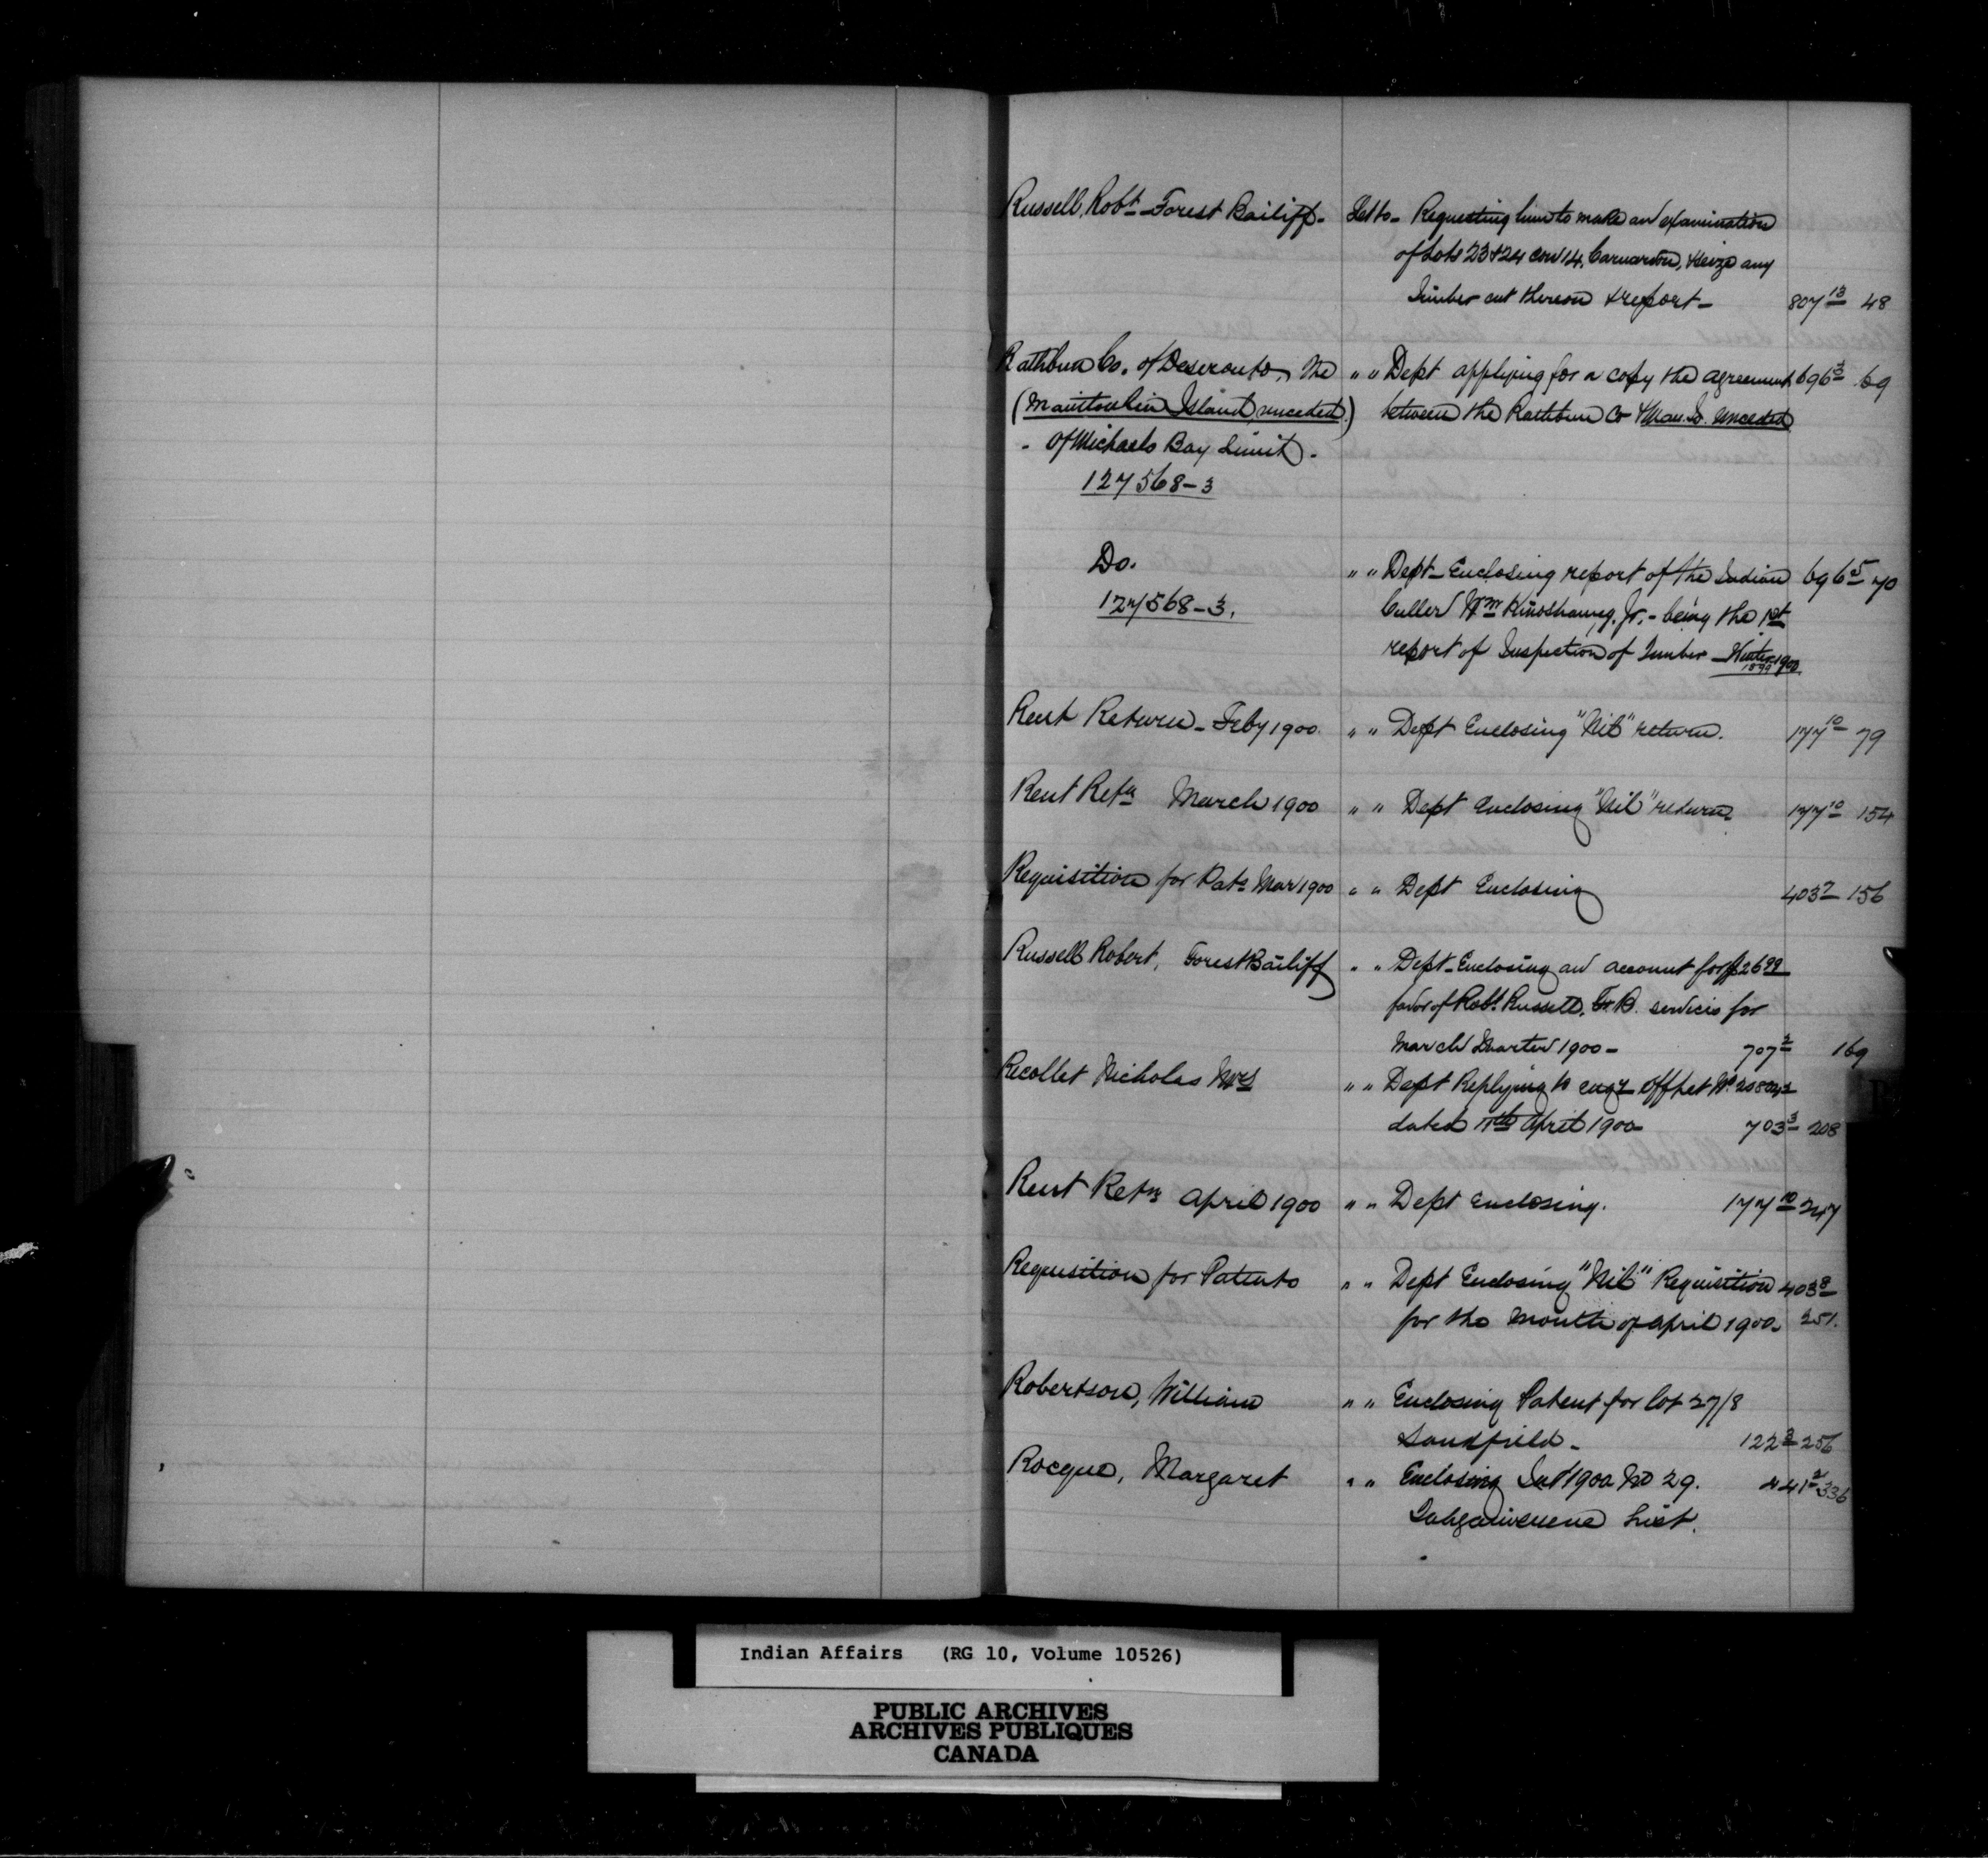 Russell, Robt - Forest Bailiff - Let to - Requesting him to make an examination
of Lots 23 & 24 con 14, Carnarvon, & seize any
Timber cut thereon & report - 807 13 48
Rathbun Co. of Deseronto, The " " Dept applying for a copy the agreement 696 3 69
(Manitoulin Island, unceded) between the Rathbun Co & Man. Is. unceded
- Of Michaels Bay Limit -
127568-3
Do. " " Dept - Enclosing report of the Indian 696 5 70
127568-3. Culler Wm Kinoshameg, Jr. - being the 1st
report of Inspection of Timber - Winter 1899 1900
Rent Return - Feby 1900 " " Dept Enclosing "Nil" return. 177 10 79
Rent Retn March 1900 " " Dept Enclosing "Nil" return 177 10 154
Requisition for Pats Mar 1900 " " Dept Enclosing 403 7 156
Russell Robert, Forest Bailiff " " Dept - Enclosing an account for $26 99
favor of Robt Russell, F. B. services for
March Quarter 1900 - 707 2 169
Recollet Nicholas Mrs " " Dept Replying to
dated 11th April 1900 - 703 3 208
Rent Retn April 1900 " " Dept Enclosing. 177 10 247
Requisition for Patents " " Dept Enclosing "Nil" Requisition 403 8
for the month of April 1900 - 251.
Robertson, William " " Enclosing Patent for lot 27/8
Sandfield - 122 3 256
Rocque, Margaret " " Enclosing Int 1900 No 29. 441 2 336
List.
Indian Affairs (RG 10, Volume 10526)
PUBLIC ARCHIVES
ARCHIVES PUBLIQUES
CANADA